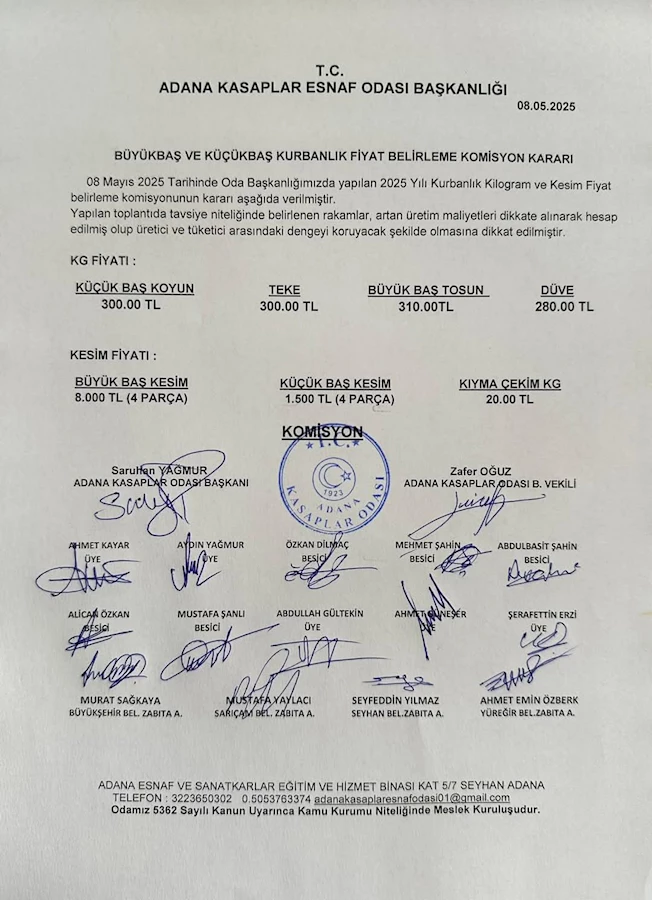 T.C.
ADANA KASAPLAR ESNAF ODASI BAŞKANLIĞI
08.05.2025
BÜYÜKBAŞ VE KÜÇÜKBAŞ KURBANLIK FİYAT BELİRLEME KOMİSYON KARARI
08 Mayıs 2025 Tarihinde Oda Başkanlığımızda yapılan 2025 Yılı Kurbanlık Kilogram ve Kesim Fiyat
belirleme komisyonunun kararı aşağıda verilmiştir.
Yapılan toplantıda tavsiye niteliğinde belirlenen rakamlar, artan üretim maliyetleri dikkate alınarak hesap
edilmiş olup üretici ve tüketici arasındaki dengeyi koruyacak şekilde olmasına dikkat edilmiştir.
KG FİYATI :
KÜÇÜK BAŞ KOYUN TEKE BÜYÜK BAŞ TOSUN DÜVE
300.00 TL 300.00 TL 310.00TL 280.00 TL
KESİM FİYATI :
BÜYÜK BAŞ KESİM KÜÇÜK BAŞ KESİM KIYMA ÇEKİM KG
8.000 TL (4 PARÇA) 1.500 TL (4 PARÇA) 20.00 TL
KOMİSYON
T.C.
1923
ADANA
KASAPLAR ODASI
Saruhan YAĞMUR Zafer OĞUZ
ADANA KASAPLAR ODASI BAŞKANI ADANA KASAPLAR ODASI B. VEKİLİ
AHMET KAYAR AYDIN YAĞMUR ÖZKAN DİLMAÇ MEHMET ŞAHİN ABDULBASİT ŞAHİN
ÜYE ÜYE BESİCİ BESİCİ BESİCİ
ALİCAN ÖZKAN MUSTAFA ŞANLI ABDULLAH GÜLTEKİN AHMET ŞERAFETTİN ERZİ
BESİCİ BESİCİ ÜYE ÜYE ÜYE
MURAT SAĞKAYA MUSTAFA YAYLACI SEYFEDDİN YILMAZ AHMET EMİN ÖZBERK
BÜYÜKŞEHİR BEL. ZABITA A. SARIÇAM BEL. ZABITA A. SEYHAN BEL.ZABITA A. YÜREĞİR BEL.ZABITA A.
ADANA ESNAF VE SANATKARLAR EĞİTİM VE HİZMET BİNASI KAT 5/7 SEYHAN ADANA
TELEFON : 3223650302 0.5053763374 adanakasaplaresnafodasi01@gmail.com
Odamız 5362 Sayılı Kanun Uyarınca Kamu Kurumu Niteliğinde Meslek Kuruluşudur.